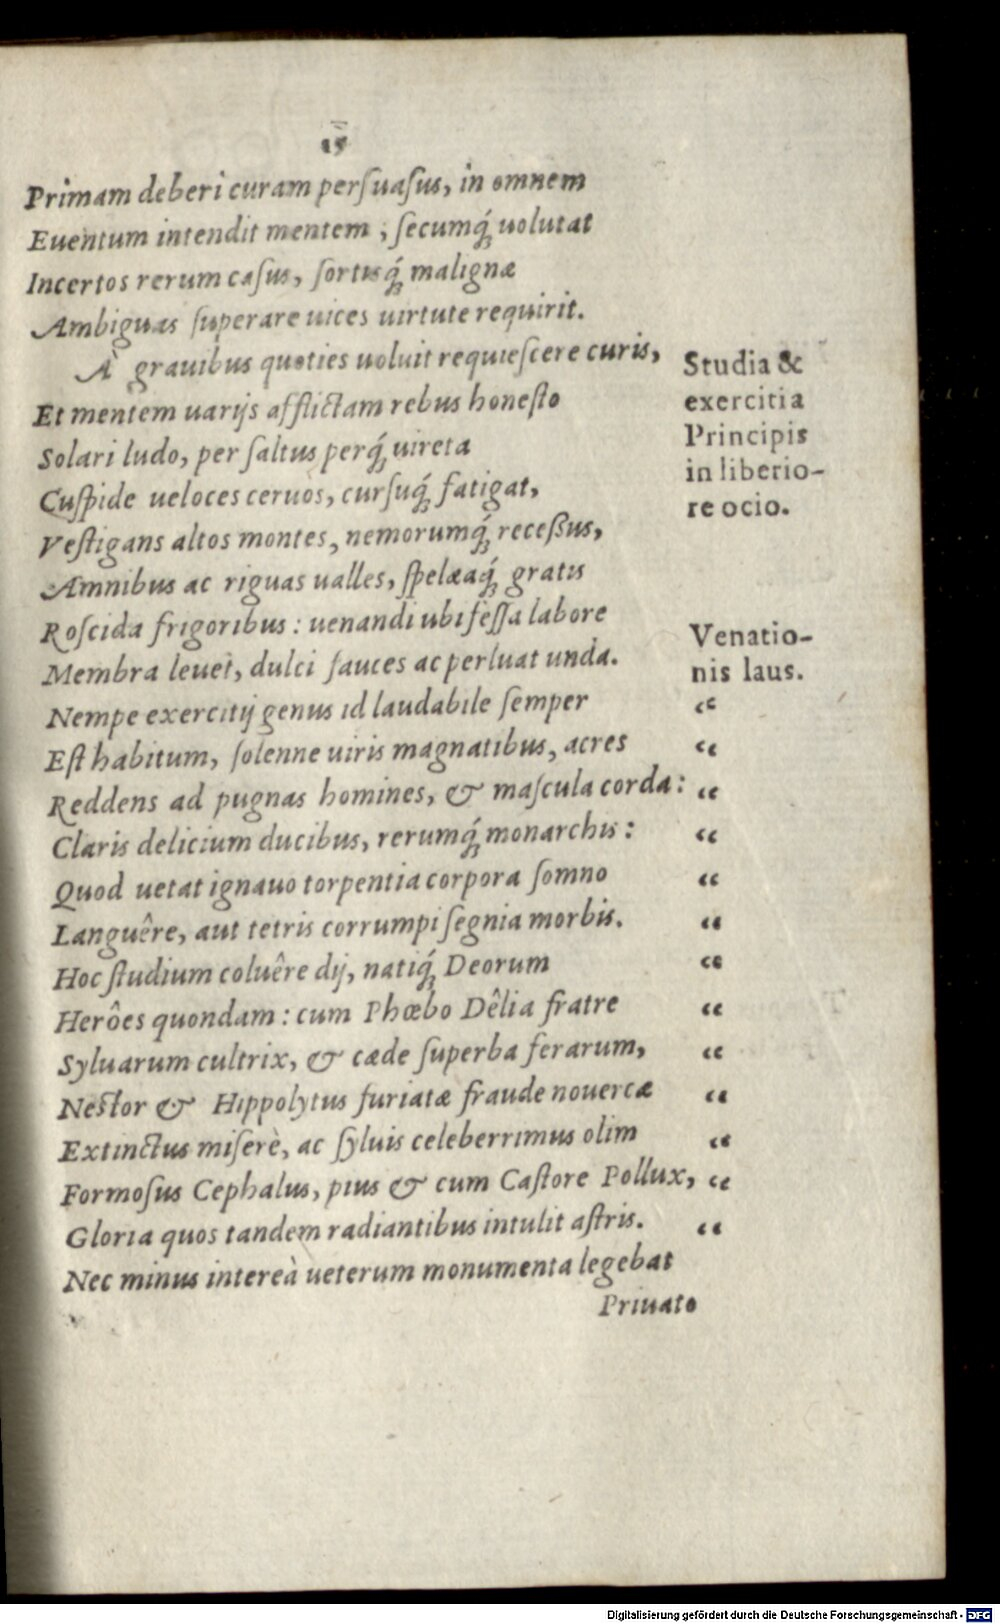 15
Primam deberi curam perſuaſus, in omnem
Euentum intendit mentem; ſecumq́; uolutat
Incertos rerum caſus, ſortisq́; malignæ
Ambiguas ſuperare uices uirtute requirit.
À grauibus quoties uoluit requieſcere curis,
Studia &
Et mentem uarijs afflictam rebus honeſto
exercitia
Solari ludo, per ſaltus perq́; uireta
Principis
Cuſpide ueloces ceruos, curſuq́; fatigat,
in liberio-
Veſtigans altos montes, nemorumq́; receßus,
re ocio.
Amnibus ac riguas ualles, ſpelæaq́; gratis
Roſcida frigoribus: uenandi ubi feſſa labore
Venatio-
Membra leuet, dulci fauces ac perluat unda.
nis laus.
Nempe exercitij genus id laudabile ſemper “
Eſt habitum, ſolenne uiris magnatibus, acres “
Reddens ad pugnas homines, & maſcula corda: “
Claris delicium ducibus, rerumq́; monarchis: “
Quod uetat ignauo torpentia corpora ſomno “
Languêre, aut tetris corrumpi ſegnia morbis. “
Hoc ſtudium coluêre dij, natiq́; Deorum “
Herôes quondam: cum Phœbo Dêlia fratre “
Syluarum cultrix, & cæde ſuperba ferarum, “
Neſtor & Hippolytus furiatæ fraude nouercæ “
Extinctus miſerè, ac ſyluis celeberrimus olim “
Formoſus Cephalus, pius & cum Caſtore Pollux, “
Gloria quos tandem radiantibus intulit aſtris. “
Nec minus intereà ueterum monumenta legebat
Priuato
Digitalisierung gefördert durch die Deutsche Forschungsgemeinschaft - DFG